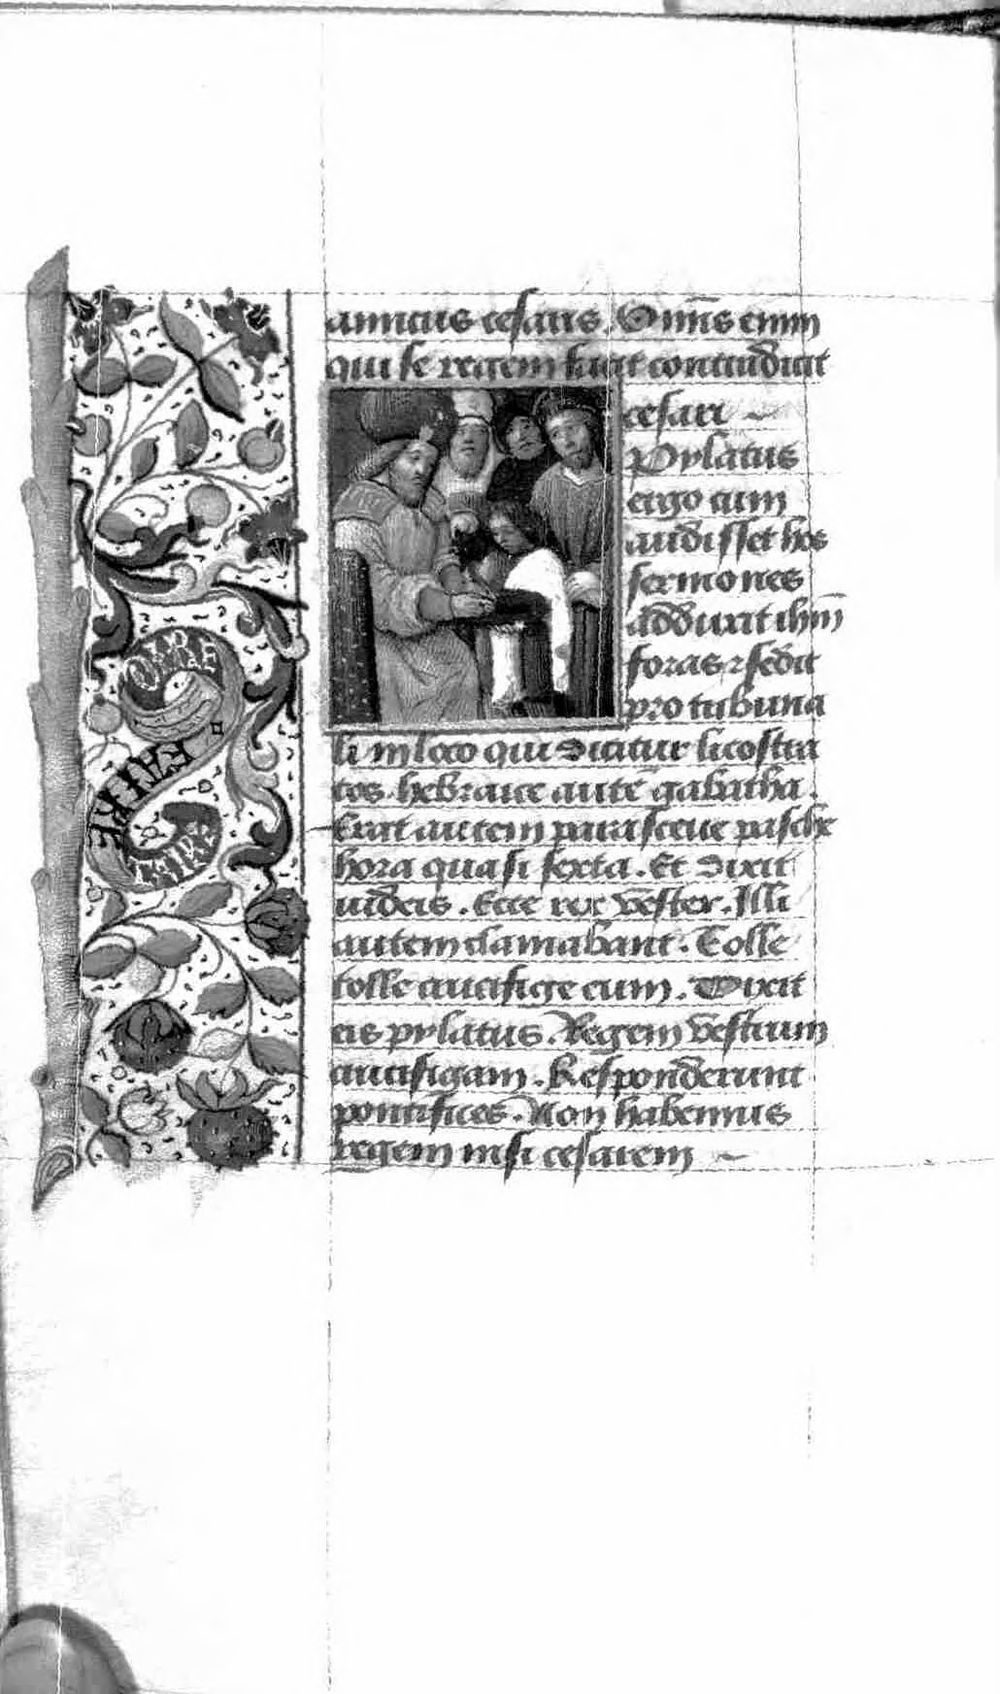 amicus cesaris. Om̄is enim
qui se regem facit contradicit
cesari
Pylatus
ergo cum
audisset hos
sermones
adduxit ihm̄
foras ⁊ sedit
pro tribuna
li in loco qui dicitur licostra
tos. hebraice autē gabatha.
Erat autem parasceue pasche
hora quasi sexta. Et dixit
iudeis. Ecce rex vester. Illi
autem clamabant. Tolle
tolle crucifige eum. Dixit
eis pylatus. Regem vestrum
crucifigam. Responderunt
pontifices. Non habemus
regem nisi cesarem